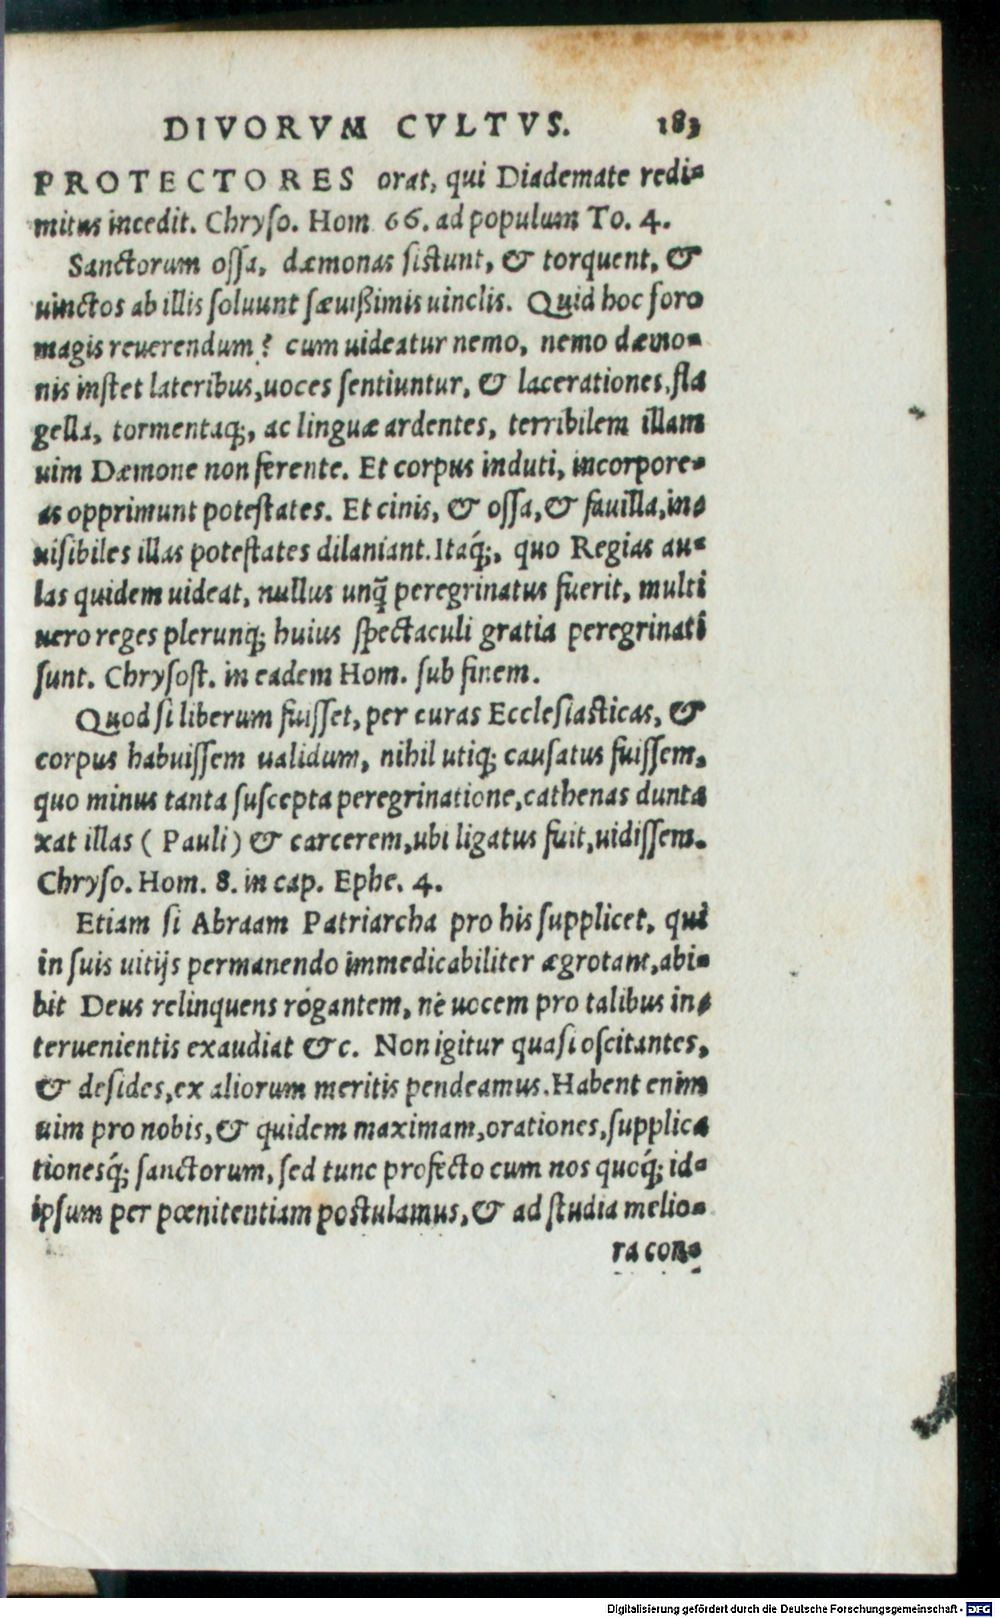 DIVORVM CVLTVS. 183
PROTECTORES orat, qui Diademate redi-
mitus incedit. Chryso. Hom 66. ad populum To. 4.
Sanctorum ossa, dæmonas sistunt, & torquent, &
uinctos ab illis soluunt sæuißimis uinclis. Quid hoc foro
magis reuerendum? cum uideatur nemo, nemo dæmo-
nis instet lateribus, uoces sentiuntur, & lacerationes, fla
gella, tormentaq́;, ac linguæ ardentes, terribilem illam
uim Dæmone non ferente. Et corpus induti, incorpore-
as opprimunt potestates. Et cinis, & ossa, & fauilla, in-
uisibiles illas potestates dilaniant. Itaq́;, quo Regias au-
las quidem uideat, nullus unq̃ peregrinatus fuerit, multi
uero reges plerunq; huius spectaculi gratia peregrinati
sunt. Chrysost. in eadem Hom. sub finem.
Quod si liberum fuisset, per curas Ecclesiasticas, &
corpus habuissem ualidum, nihil utiq; causatus fuissem,
quo minus tanta suscepta peregrinatione, cathenas dunta
xat illas ( Pauli ) & carcerem, ubi ligatus fuit, uidissem.
Chryso. Hom. 8. in cap. Ephe. 4.
Etiam si Abraam Patriarcha pro his supplicet, qui
in suis uitijs permanendo immedicabiliter ægrotant, abi-
bit Deus relinquens rogantem, ne uocem pro talibus in-
teruenientis exaudiat &c. Non igitur quasi oscitantes,
& desides, ex aliorum meritis pendeamus. Habent enim
uim pro nobis, & quidem maximam, orationes, supplica
tionesq́; sanctorum, sed tunc profecto cum nos quoq́; id-
ipsum per pœnitentiam postulamus, & ad studia melio-
ra con-
Digitalisierung gefördert durch die Deutsche Forschungsgemeinschaft - DFG